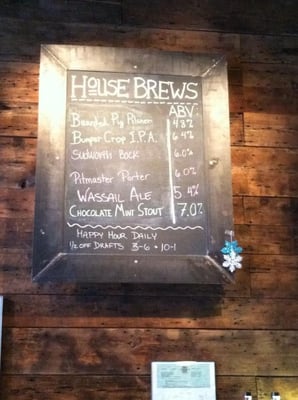 House Brews
ABV:
Bearded Pig Pilsner 4.8%
Bumper Crop I.P.A. 6.4%
Sudworth Bock 6.0%
Pitmaster Porter 6.0%
Wassail Ale 5.4%
Chocolate Mint Stout 7.0%
Happy Hour Daily
½ off Drafts 3-6 + 10-1